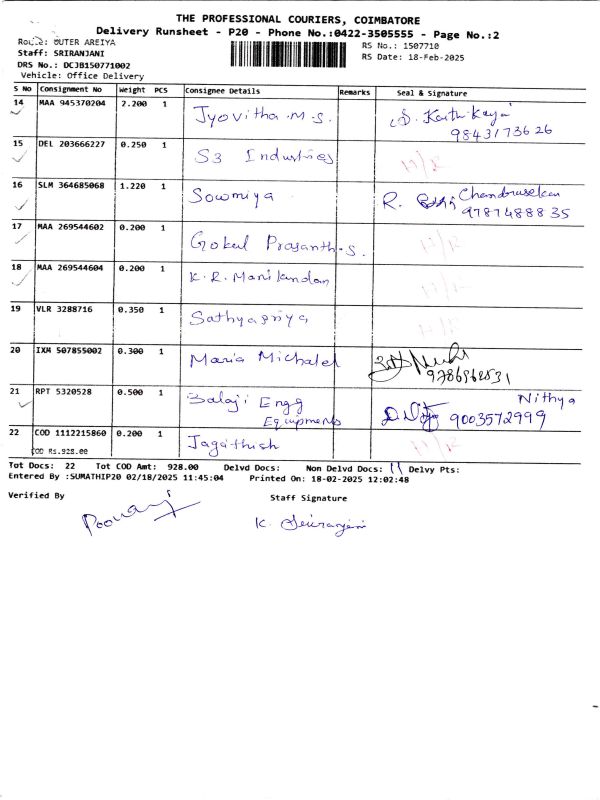 THE PROFESSIONAL COURIERS, COIMBATORE
Delivery Runsheet - P20 - Phone No.:0422-3505555 - Page No.:2
Route: OUTER AREIYA
RS No.: 1507710
Staff: SRIRANJANI
RS Date: 18-Feb-2025
DRS No.: DCJB150771002
Vehicle: Office Delivery
S No Consignment No Weight PCS Consignee Details Remarks Seal & Signature
14 MAA 945370204 2.200 1 Jyovitha.M.S.
9843173626
15 DEL 203666227 0.250 1 S3 Industries
16 SLM 364685068 1.220 1 Sowmiya R. Chandrasekar
9787488835
17 MAA 269544602 0.200 1 Gokul Prasanth.S.
18 MAA 269544604 0.200 1 K.R. Manikandan
19 VLR 3288716 0.350 1 Sathyapriya
20 IXM 507855002 0.300 1 Maria Michalel
9786962531
21 RPT 5320528 0.500 1 Balaji Engg Nithya
Equipments 9003572999
22 COD 1112215860 0.200 1 Jagathish
COD Rs.928.00
Tot Docs: 22 Tot COD Amt: 928.00 Delvd Docs: Non Delvd Docs: 11 Delvy Pts:
Entered By :SUMATHIP20 02/18/2025 11:45:04 Printed On: 18-02-2025 12:02:48
Verified By Staff Signature
K. Sriranjani